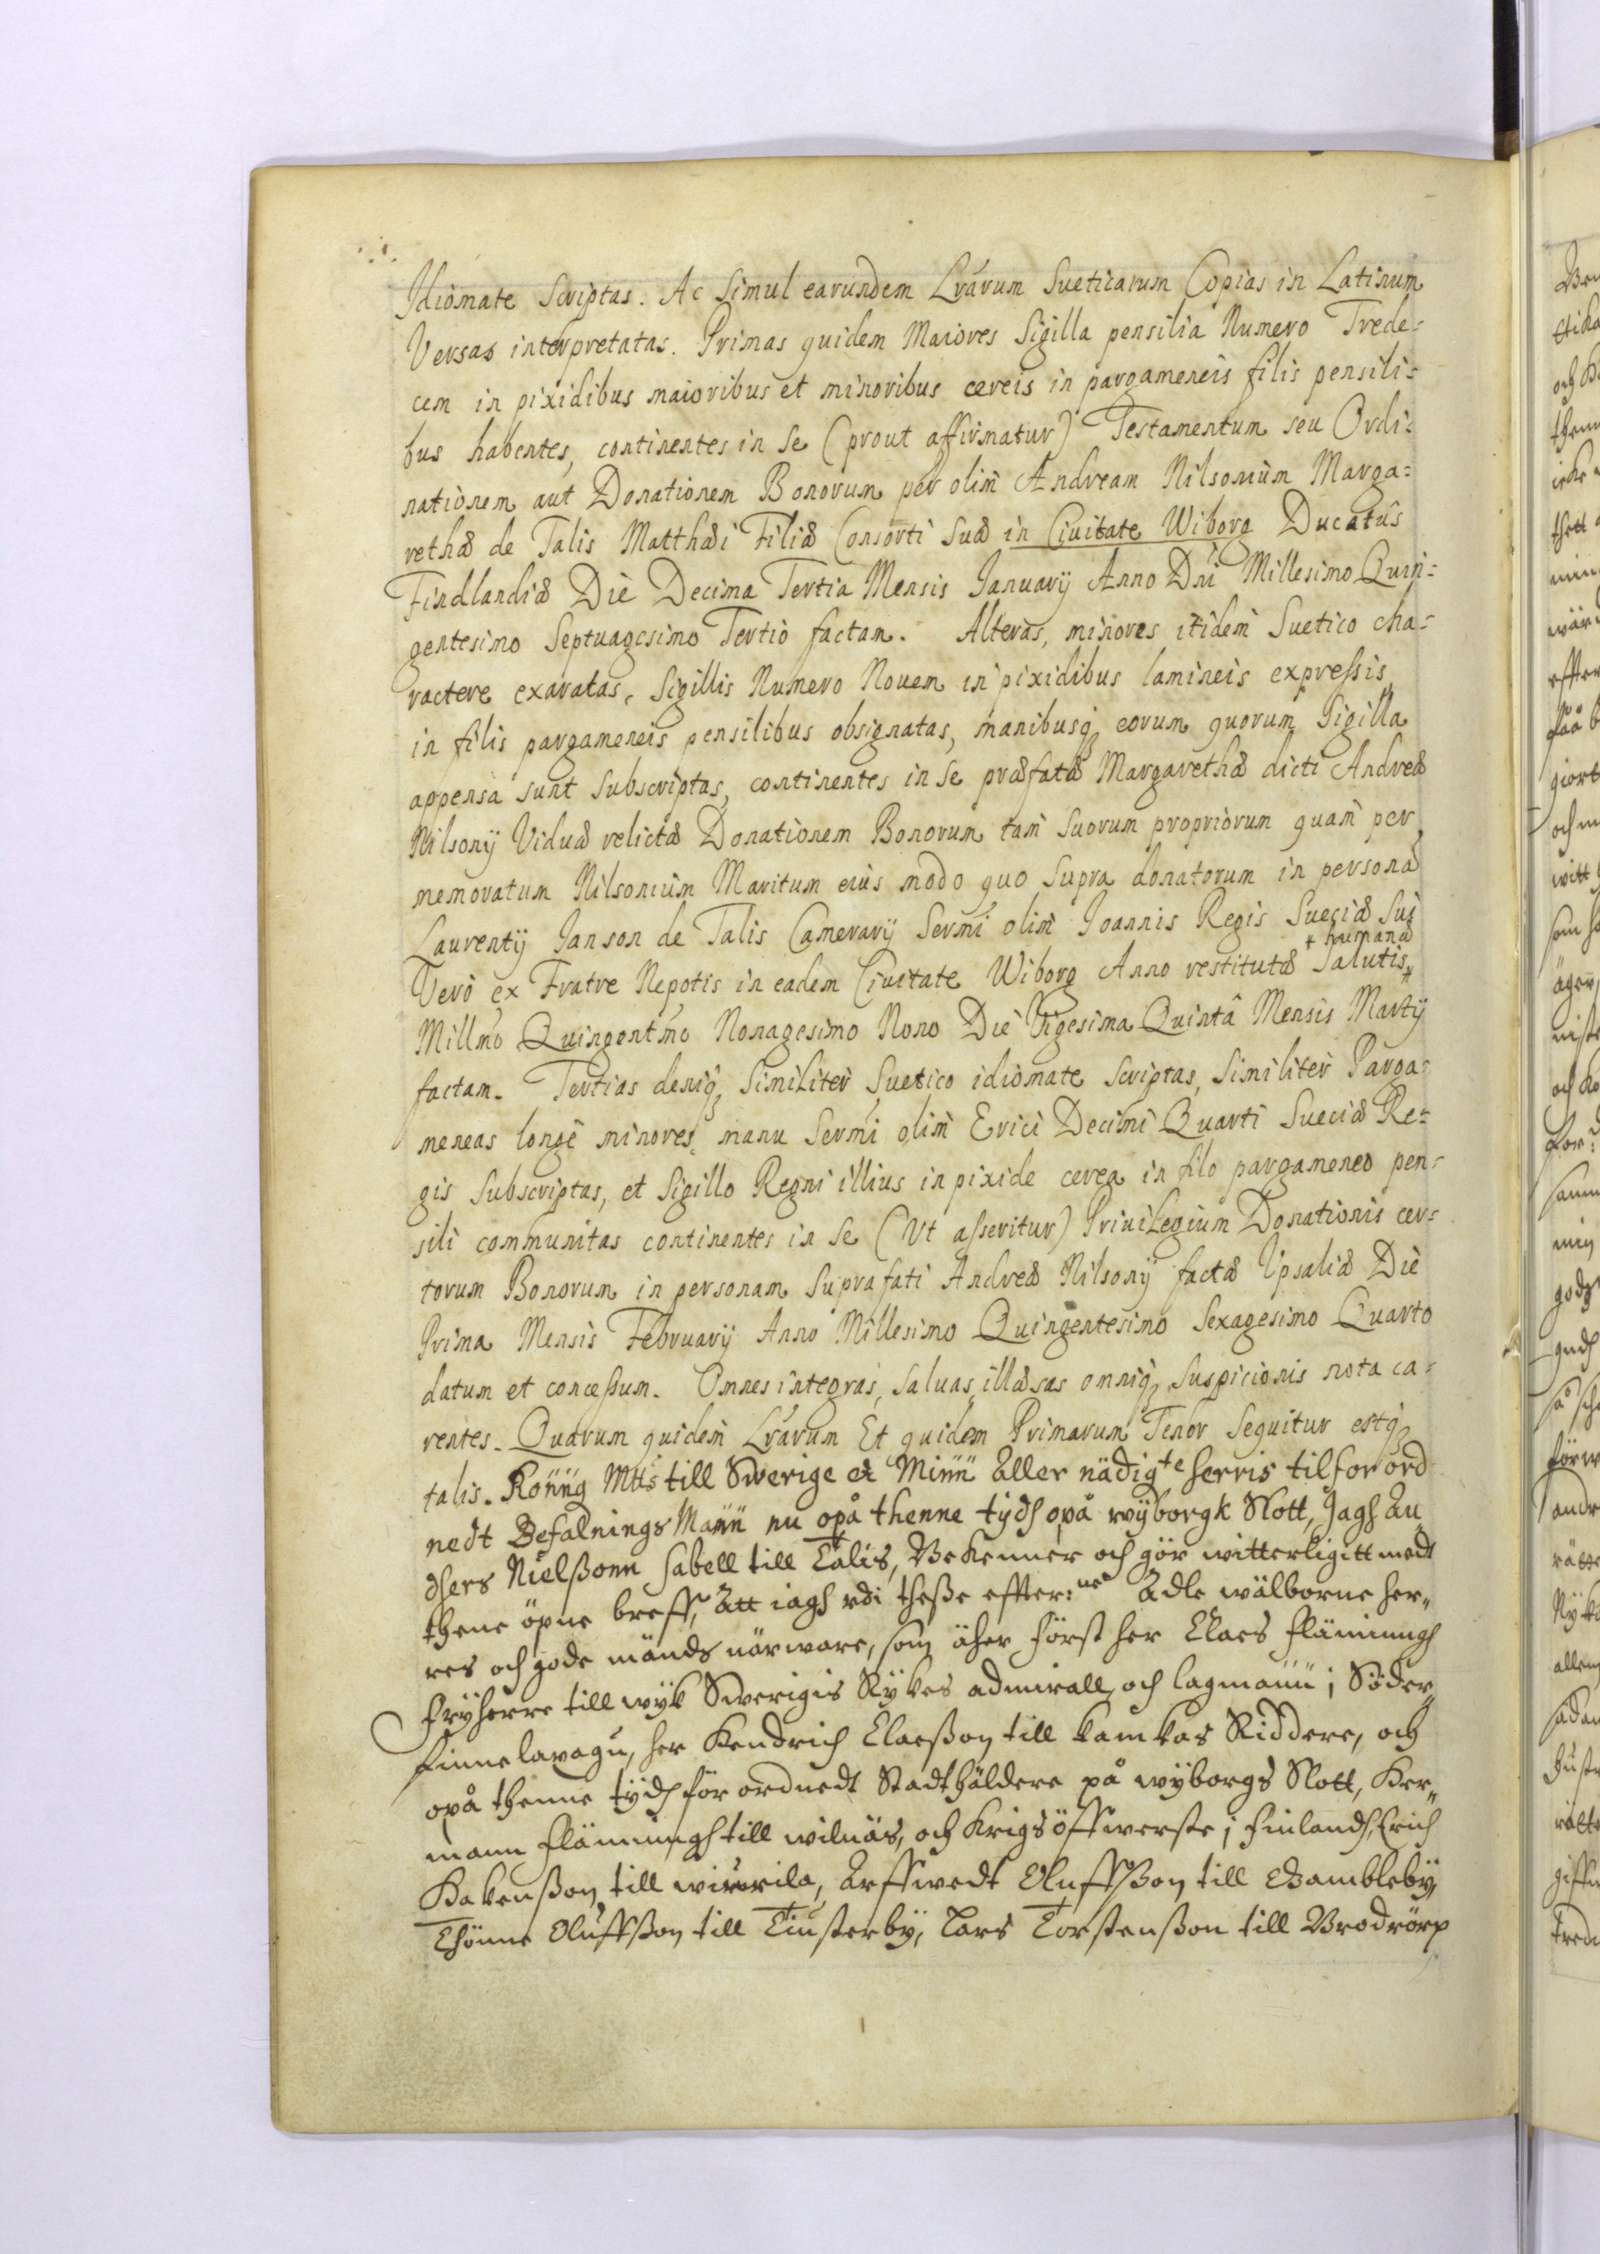 Idiomate Scriptas. Ac Simul earundem Lrarum Sueticarum Copias in Latinum
Versas interpretatas. Primas quidem Maiores Sigilla pensilia Numero Trede-
cem in pixidibus maioribus et minoribus cereis in pargameneis filis pensili-
bus habentes, continentes in Se (prout affirmatur) Testamentum seu Ordi-
nationem aut Donationem Bonorum per olim Andream Nilsonium Marga-
rethæ de Talis Matthæi Filiæ Consorti Suæ in Ciuitate Wiborg Ducatus
Findlandiæ Die Decima Tertia Mensis Ianuarij Anno Dni Millesimo Quin-
gentesimo Septuagesimo Tertio factam. Alteras, minores itidem Suetico cha-
ractere exaratas, Sigillis Numero Nouem in pixidibus lamineis expressis
in filis pargameneis pensilibus obsignatas, manibusq eorum quorum Sigilla
appensa sunt Subscriptas, continentes in Se præfatæ Margarethæ dicti Andreæ
Nilsonij Viduæ relictæ Donationem Bonorum tam Suorum propriorum quam per
memoratum Nilsonium Maritum eius modo quo Supra donatorum in persona
Laurentij Ianson de Talis Camerarij Sermi olim Ioannis Regis Sueciæ Sui
+ humanæ
Vero ex Fratre Nepotis in eadem Ciuitate Wiborg Anno restitutæ Salutis +
Millmo Quingentmo Nonagesimo Nono Die Vigesima Quintâ Mensis Martij
factam. Tertias deniq Similiter Suetico idiomate Scriptas, Similiter Parga-
meneas longe minores, manu Sermi olim Erici Decimi Quarti Sueciæ Re-
gis Subscriptas, et Sigillo Regni illius in pixide cerea in filo pargameneo pen-
sili communitas continentes in Se (Vt asseritur) Priuilegium Donationis cer-
torum Bonorum in personam Suprafati Andreæ Nilsonij factæ Vpsaliæ Die
Prima Mensis Februarij Anno Millesimo Quingentesimo Sexagesimo Quarto
datum et concessum. Omnes integras, Saluas, illæsas omniq Suspicionis nota ca-
rentes. Quarum quidem Lrarum Et quidem Primarum Tenor Sequitur estq
talis. Könng Mtts till Swerige etc Minn Aller nådigte herris tilforord
nedt Befalnings Mann nu opå thenne tydh opå wyborgk Slott, Jagh An
dhers Nielßonn Sabell till Talis, Bekenner och gör witterligitt medt
thene öpne breff, Att iagh vdi theße effter:ne Ädle wälborne her-
res och gode mänds närware, som äher först her Claes Flämingh
Fryherre till wyk Swerigis Rykes admirall och lagmann i Söder
Finnelavagu, her Hendrich Claeßon till Kankas Riddere, och
opå thenne tydh förordnedt Stadthåldere på wyborgs Slott, Her-
mann Flämingh till wilnäs, och Krigs öffwerste i Finlandh, Erich
Hakenßon till wirvila, Arffwedt Oluffßon till Gambleby
Thönne Oluffßon till Tiusterby, Lars Torstenßon till